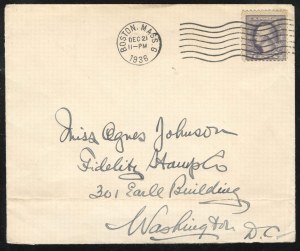 BOSTON, MASS. 6
DEC 21
11-PM
1936
Miss Agnes Johnson
Fidelity Stamp Co
301 Earle Building
Washington D.C.